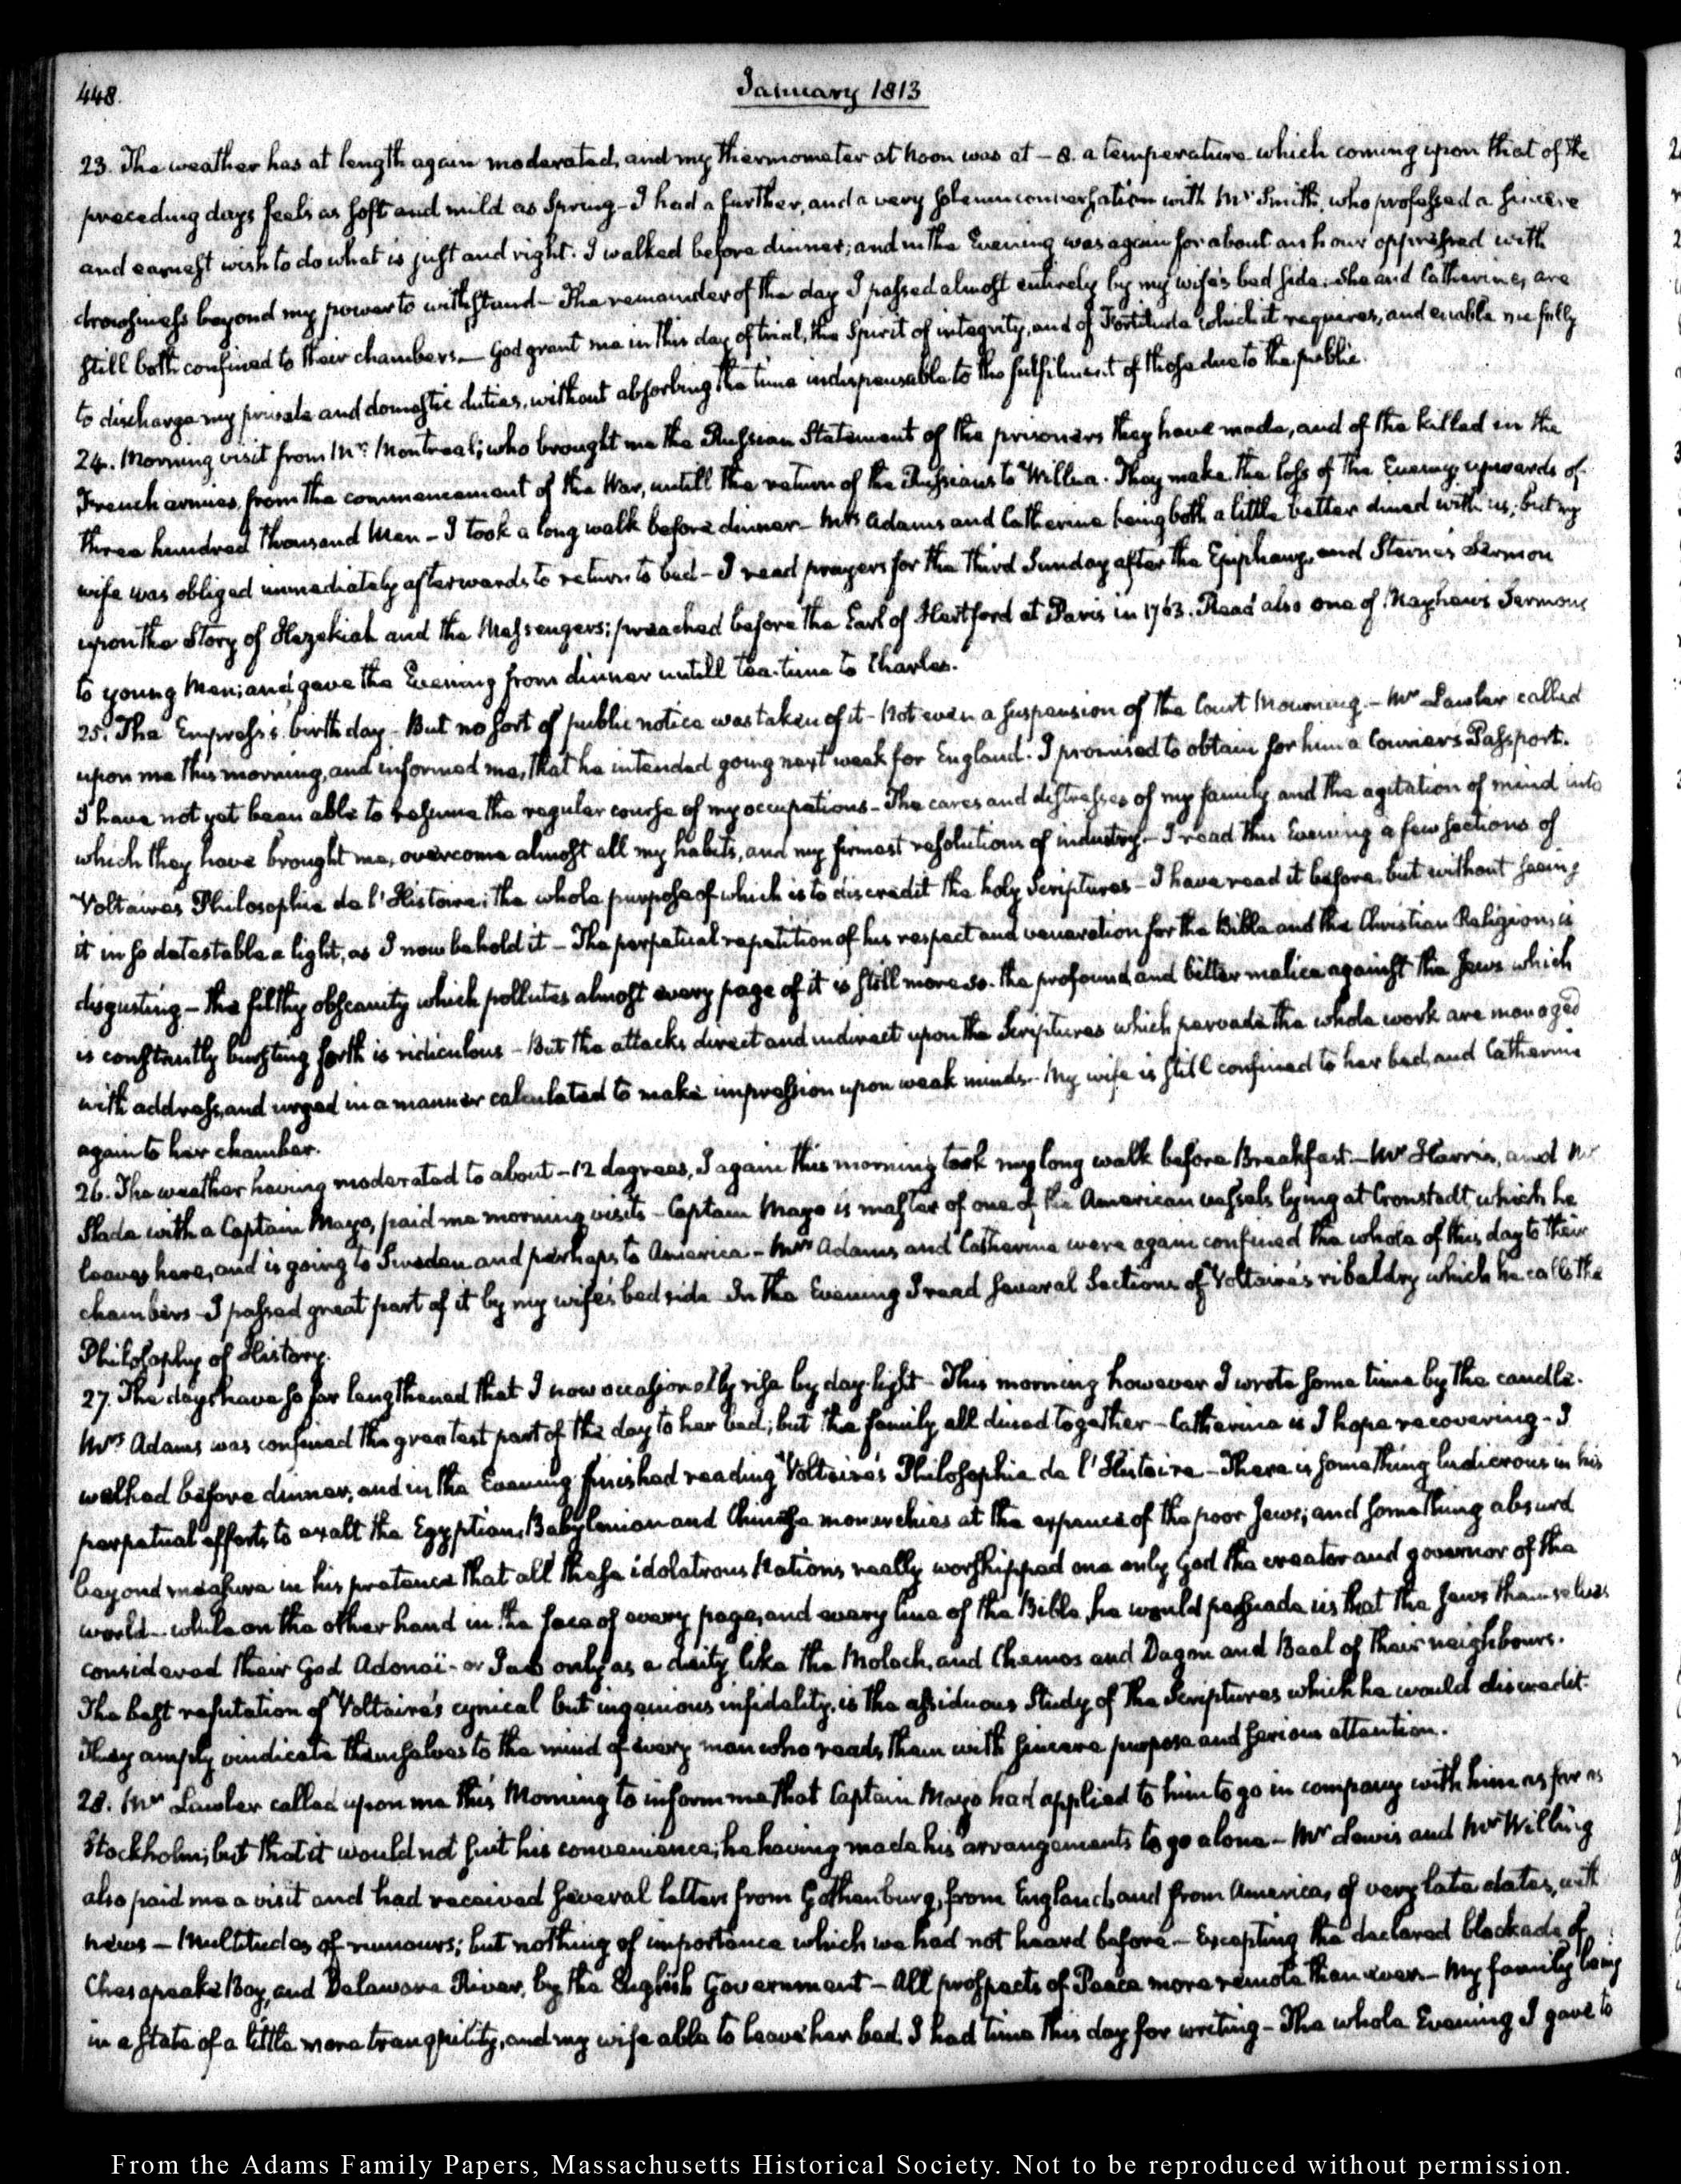 448.
January 1813
23. The weather has at length again moderated, and my thermometer at Noon was at – 8. a temperature which coming upon that of the
preceding days feels as soft and mild as Spring – I had a further, and a very solemn conversation with Mr Smith, who professed a sincere
and earnest wish to do what is just and right. I walked before dinner; and in the Evening was again for about an hour oppressed with
drowsiness beyond my power to withstand – The remainder of the day I passed almost entirely by my wife's bed side. She and Catherine, are
still both confined to their chambers. – God grant me in this day of trial, the Spirit of integrity, and of Fortitude which it requires, and enable me fully
to discharge my private and domestic duties, without absorbing the time indispensable to the fulfilment of those due to the public.
24. Morning visit from Mr Montreal; who brought me the Russian Statement of the prisoners they have made, and of the killed in the
French armies, from the commencement of the War, untill the return of the Russians to Willna. They make the loss of the Enemy, upwards of
three hundred thousand Men – I took a long walk before dinner – Mrs Adams and Catherine being both a little better dined with us; but my
wife was obliged immediately afterwards to return to bed – I read prayers for the third Sunday after the Epiphany, and Sterne's Sermon
upon the Story of Hezekiah and the Messengers; preached before the Earl of Hertford at Paris in 1763. Read also one of Mayhew's Sermons
to young Men; and gave the Evening from dinner untill tea-time to Charles.
25. The Empress's birth day – But no sort of public notice was taken of it – Not even a suspension of the Court Mourning. – Mr Lawler called
upon me this morning, and informed me, that he intended going next week for England. I promised to obtain for him a Courier's Passport.
I have not yet been able to resume the regular course of my occupations – The cares and distresses of my family and the agitation of mind into
which they have brought me, overcome almost all my habits, and my firmest resolutions of industry. – I read this Evening a few sections of
Voltaires Philosophie de l'Histoire; the whole purpose of which is to discredit the holy Scriptures – I have read it before, but without seeing
it in so detestable a light, as I now behold it – The perpetual repetition of his respect and veneration for the Bible and the Christian Religion, is
disgusting – the filthy obscenity which pollutes almost every page of it is still more so. the profound and bitter malice against the Jews which
is constantly bursting forth is ridiculous – But the attacks direct and indirect upon the Scriptures which pervade the whole work are managed
with address, and urged in a manner calculated to make impression upon weak minds. – My wife is still confined to her bed, and Catherine
again to her chamber.
26. The weather having moderated to about – 12 degrees, I again this morning took my long walk before Breakfast. – Mr Harris, and Mr
Slade with a Captain Mayo, paid me morning visits – Captain Mayo is master of one of the American vessels lying at Cronstadt, which he
leaves here, and is going to Sweden and perhaps to America – Mrs Adams and Catherine were again confined the whole of this day to their
chambers – I passed great part of it by my wife's bed side – In the Evening I read several Sections of Voltaire's ribaldry which he calls the
Philosophy of History.
27. The days have so far lengthened that I now occasionally rise by day-light – This morning however I wrote some time by the candle.
Mrs Adams was confined the greatest part of the day to her bed; but the family all dined together – Catherine is I hope recovering – I
walked before dinner, and in the Evening finished reading Voltaire's Philosophie de l'Histoire – There is something ludicrous in his
perpetual efforts to exalt the Egyptian, Babylonian and Chinese monarchies at the expence of the poor Jews; and something absurd
beyond measure in his pretence that all these idolatrous Nations really worshipped one only God the creator and governor of the
world – while on the other hand in the face of every page, and every line of the Bible, he would persuade us that the Jews themselves
considered their God Adonaï – or Jao only as a deity like the Moloch, and Chemos and Dagon and Baal of their neighbours.
The best refutation of Voltaire's cynical but ingenious infidelity, is the assiduous Study of the Scriptures which he would discredit.
They amply vindicate themselves to the mind of every man who reads them with sincere purpose and serious attention.
28. Mr Lawler called upon me this Morning to inform me that Captain Mayo had applied to him to go in company with him as far as
Stockholm; but that it would not suit his convenience; he having made his arrangements to go alone – Mr Lewis and Mr Willing
also paid me a visit and had received several letters from Gothenburg, from England, and from America, of very late dates, with
news – Multitudes of rumours; but nothing of importance which we had not heard before – Excepting the declared blockade of
Chesapeake Bay, and Delaware River, by the English Government – All prospects of Peace more remote than ever. – My family being
in a state of a little more tranquility, and my wife able to leave her bed, I had time this day for writing – The whole Evening I gave to
From the Adams Family Papers, Massachusetts Historical Society. Not to be reproduced without permission.